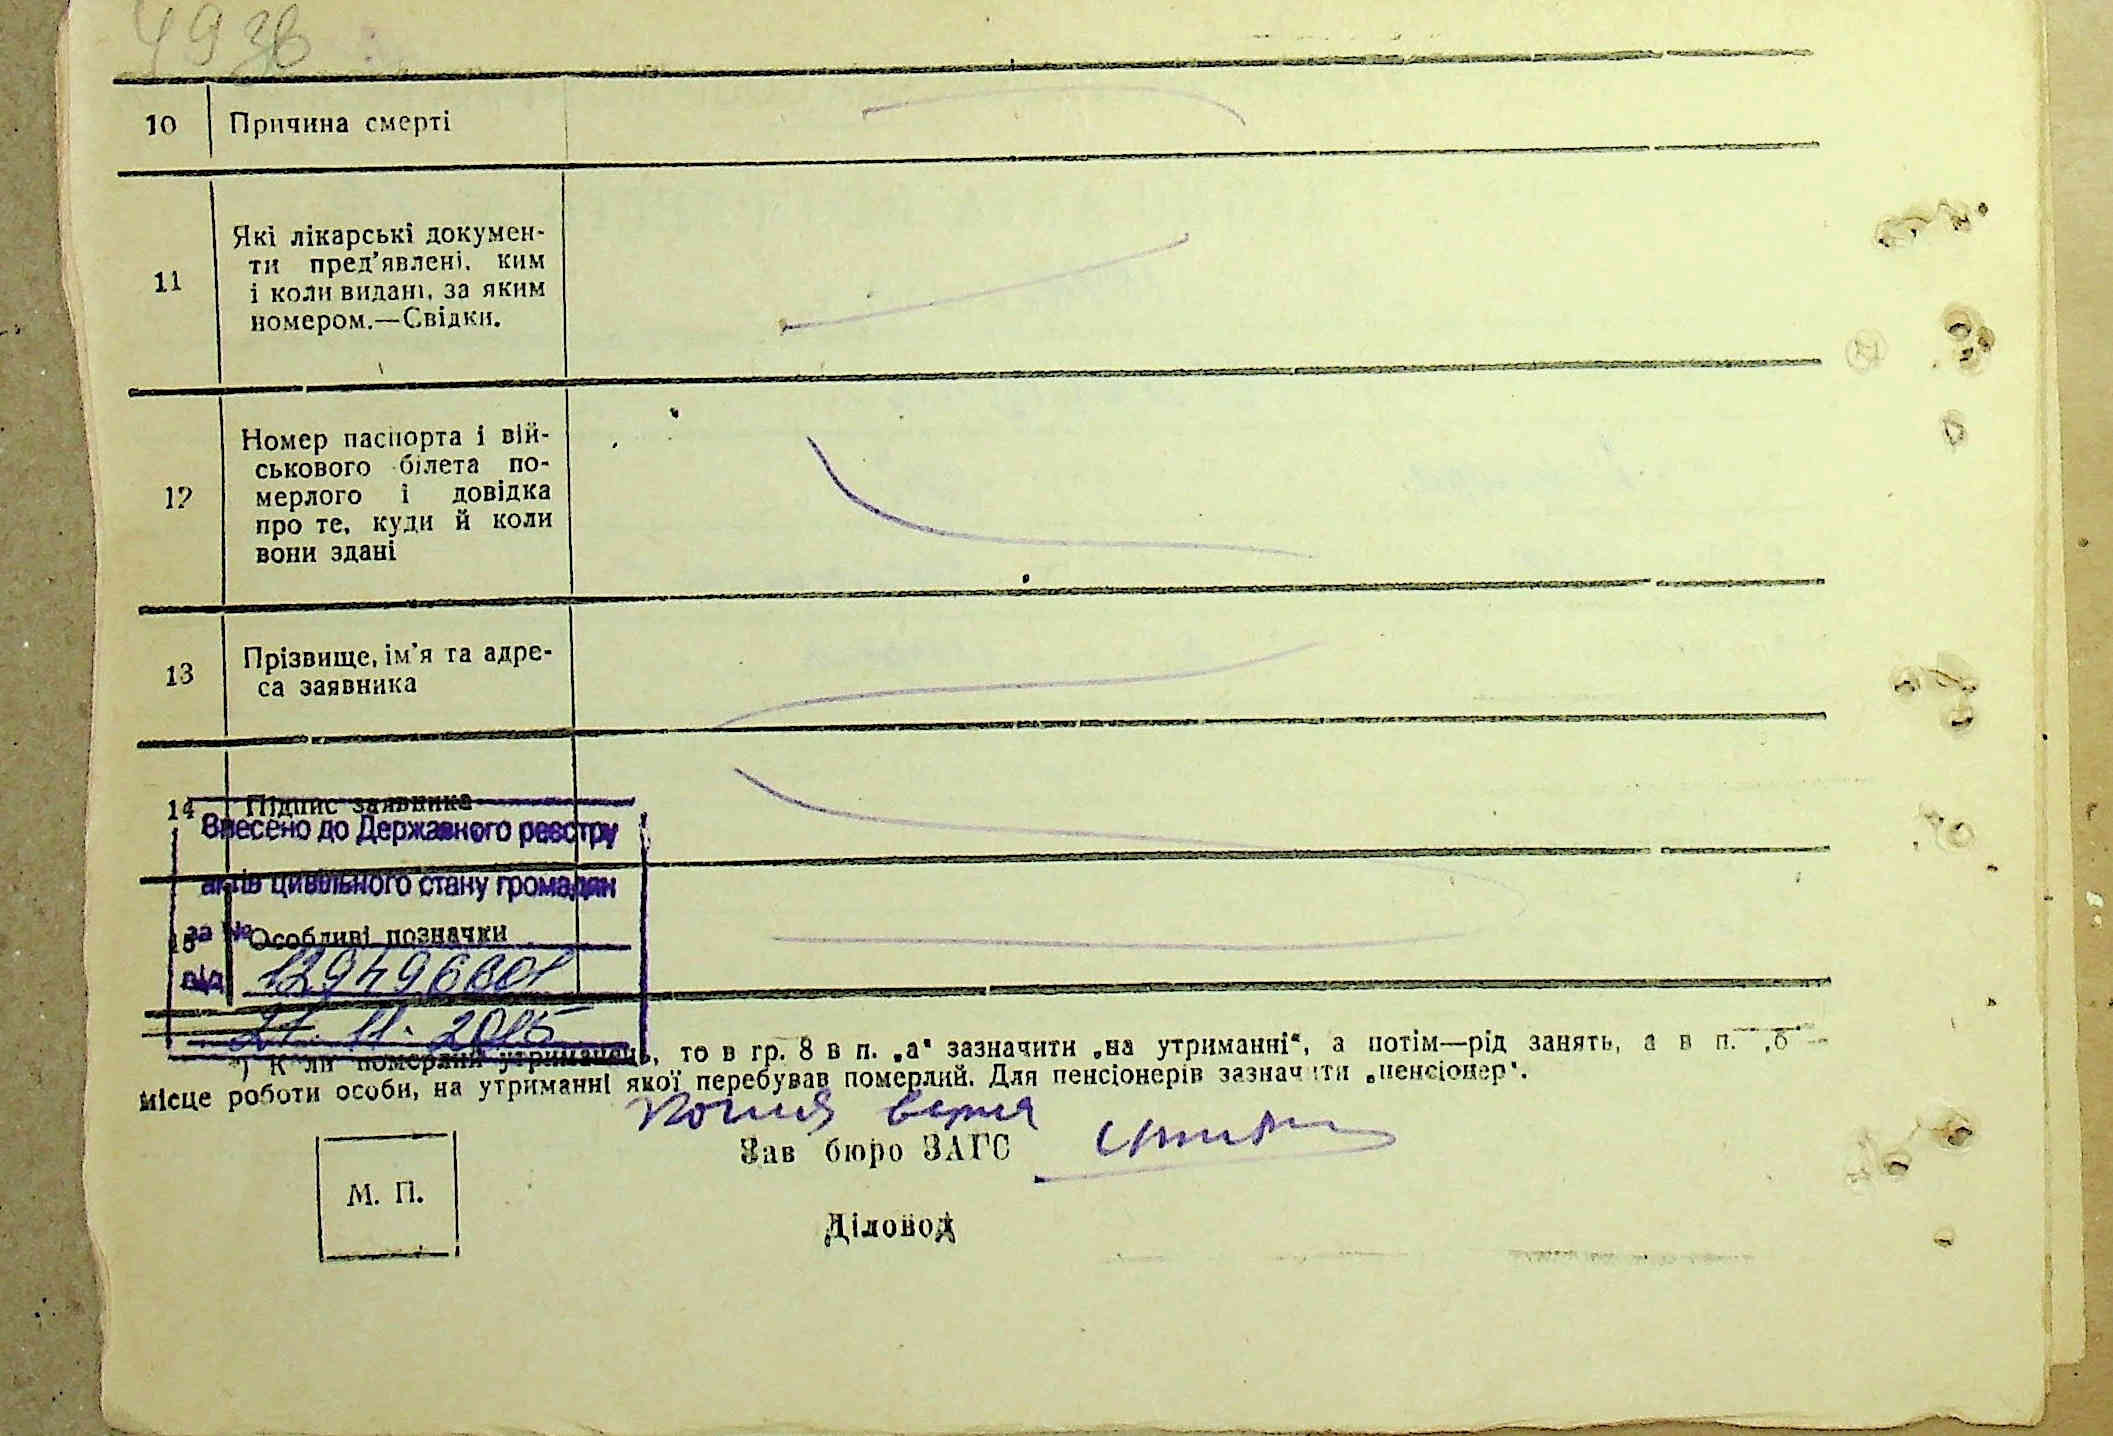 10 Причина смерті
11 Які лікарські докумен-
ти пред'явлені, ким
і коли видані, за яким
номером.—Свідки.
12 Номер паспорта і вій-
ськового білета по-
мерлого і довідка
про те, куди й коли
вони здані
13 Прізвище, ім'я та адре-
са заявника
14 Підпис заявника
Внесено до Державного реєстру
актів цивільного стану громадян
за №
15 Особливі позначки
від
21.11.2015
*) Коли померлий утриманець, то в гр. 8 в п. „а“ зазначити „на утриманні“, а потім—рід занять, а в п. „б“—
місце роботи особи, на утриманні якої перебував померлий. Для пенсіонерів зазначити „пенсіонер“.
Копия верна
Зав бюро ЗАГС
М. П.
Діловод